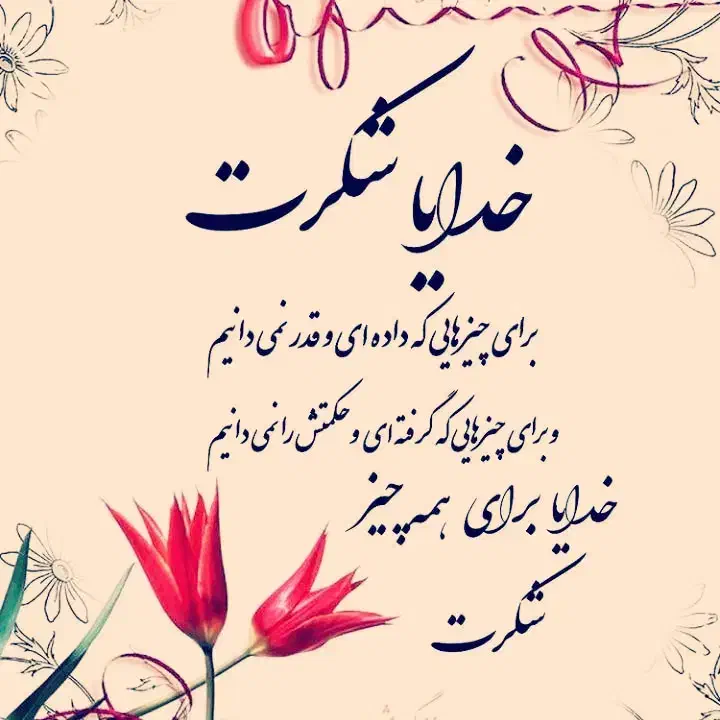 خدایا شکرت
برای چیزهایی که داده ای و قدر نمی دانیم
و برای چیزهایی که گرفته ای و حکمتش را نمی دانیم
خدایا برای همه چیز
شکرت